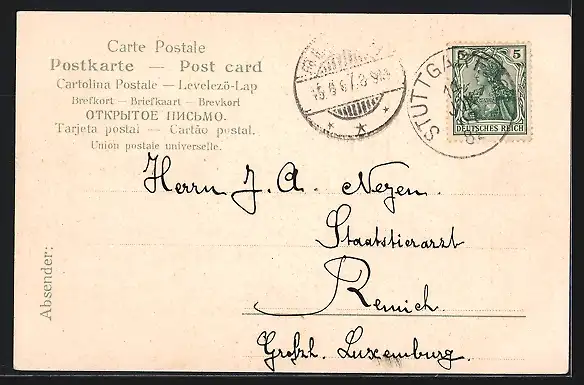 Carte Postale
Postkarte — Post card
Cartolina Postale — Levelező-Lap
Brefkort — Briefkaart — Brevkort
ОТКРЫТОЕ ПИСЬМО.
Tarjeta postal — Cartão postal.
Union postale universelle.
STUTTGART
5 5
DEUTSCHES REICH
Herrn J. A. Neyen.
Staatstierarzt
Remich.
Großh. Luxemburg.
Absender: